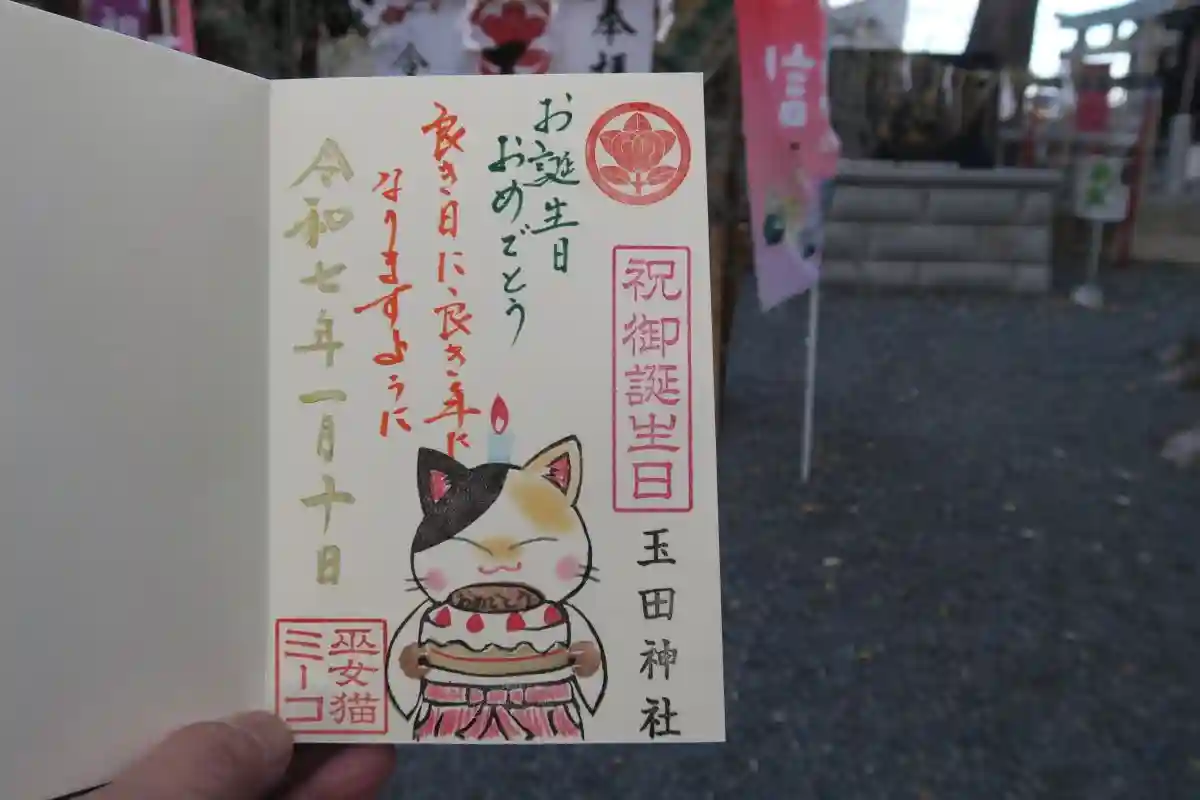 お誕生日
おめでとう
良き日に良き年に
なりますように
祝御誕生日
玉田神社
令和七年一月十日
おめでとう
巫女猫
ミーコ